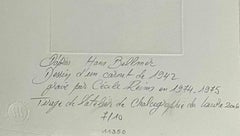 D'après Hans Bellmer
Dessin d'un carnet de 1942
gravé par Cécile Reims en 1974, 1975
Tirage de l'atelier de Chalcographie du Louvre
7/10
11350